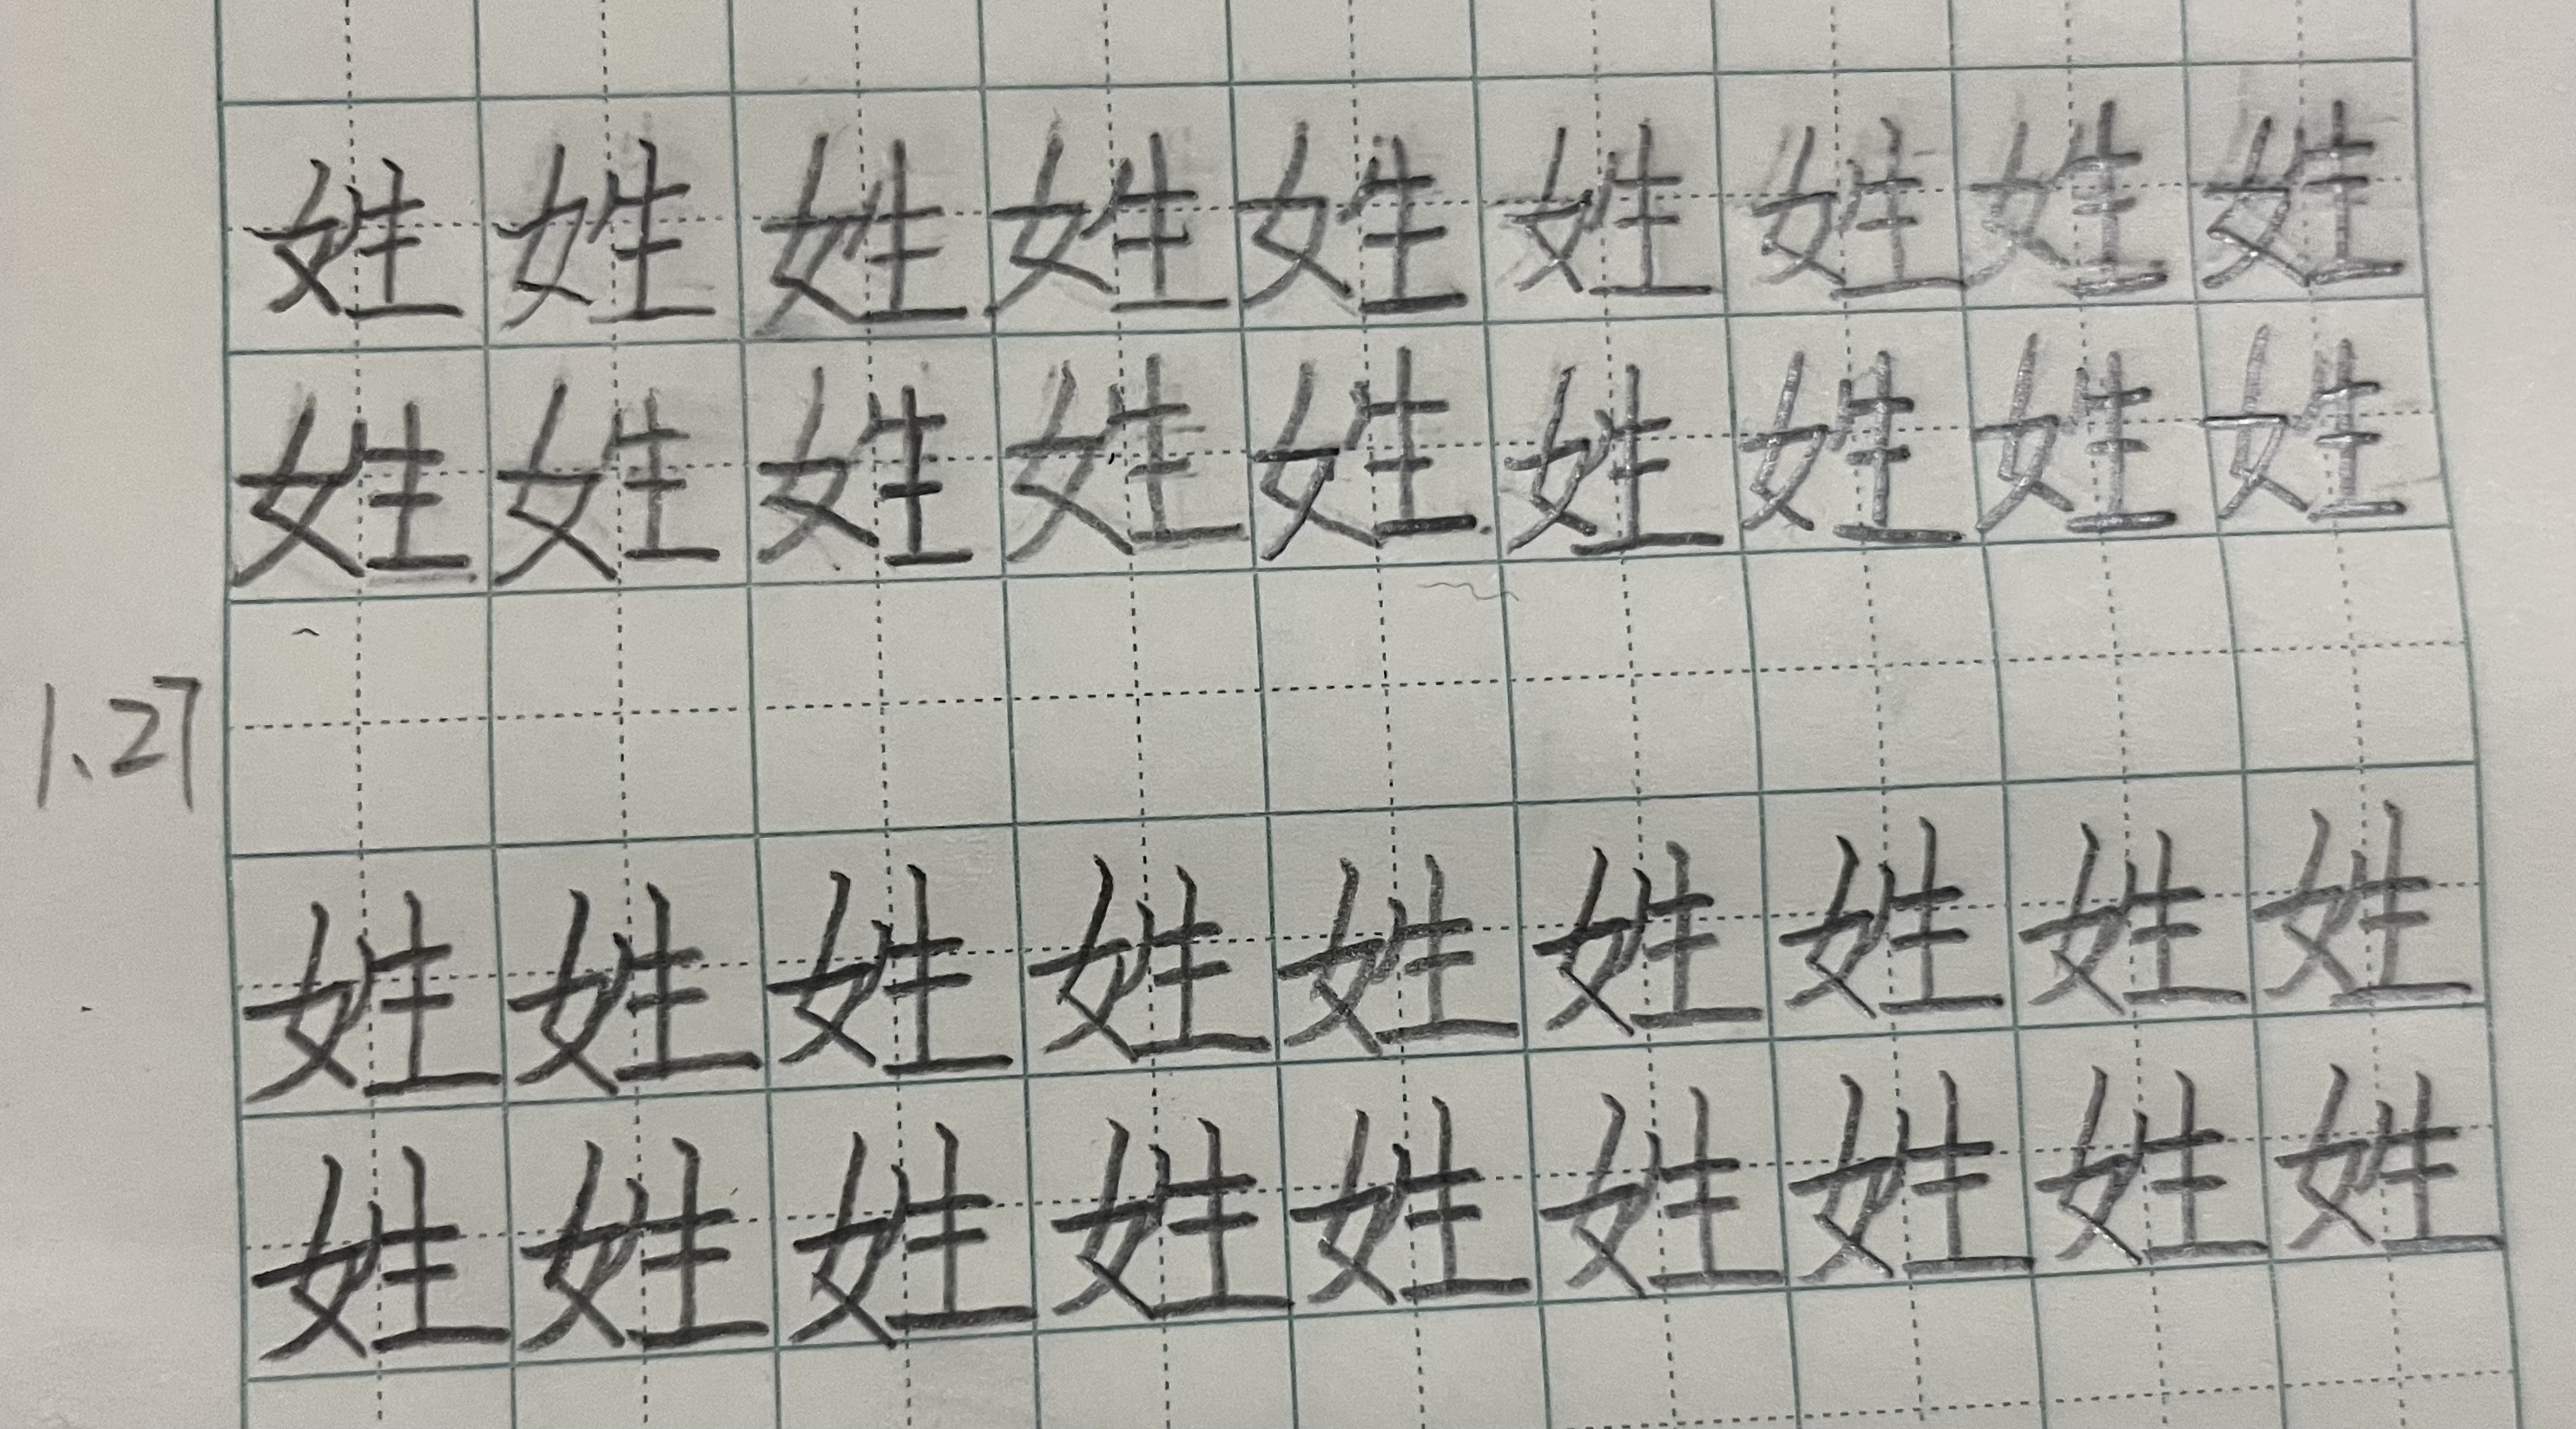 姓姓姓姓姓姓姓姓姓
姓姓姓姓姓姓姓姓姓
1.27
姓姓姓姓姓姓姓姓姓
姓姓姓姓姓姓姓姓姓